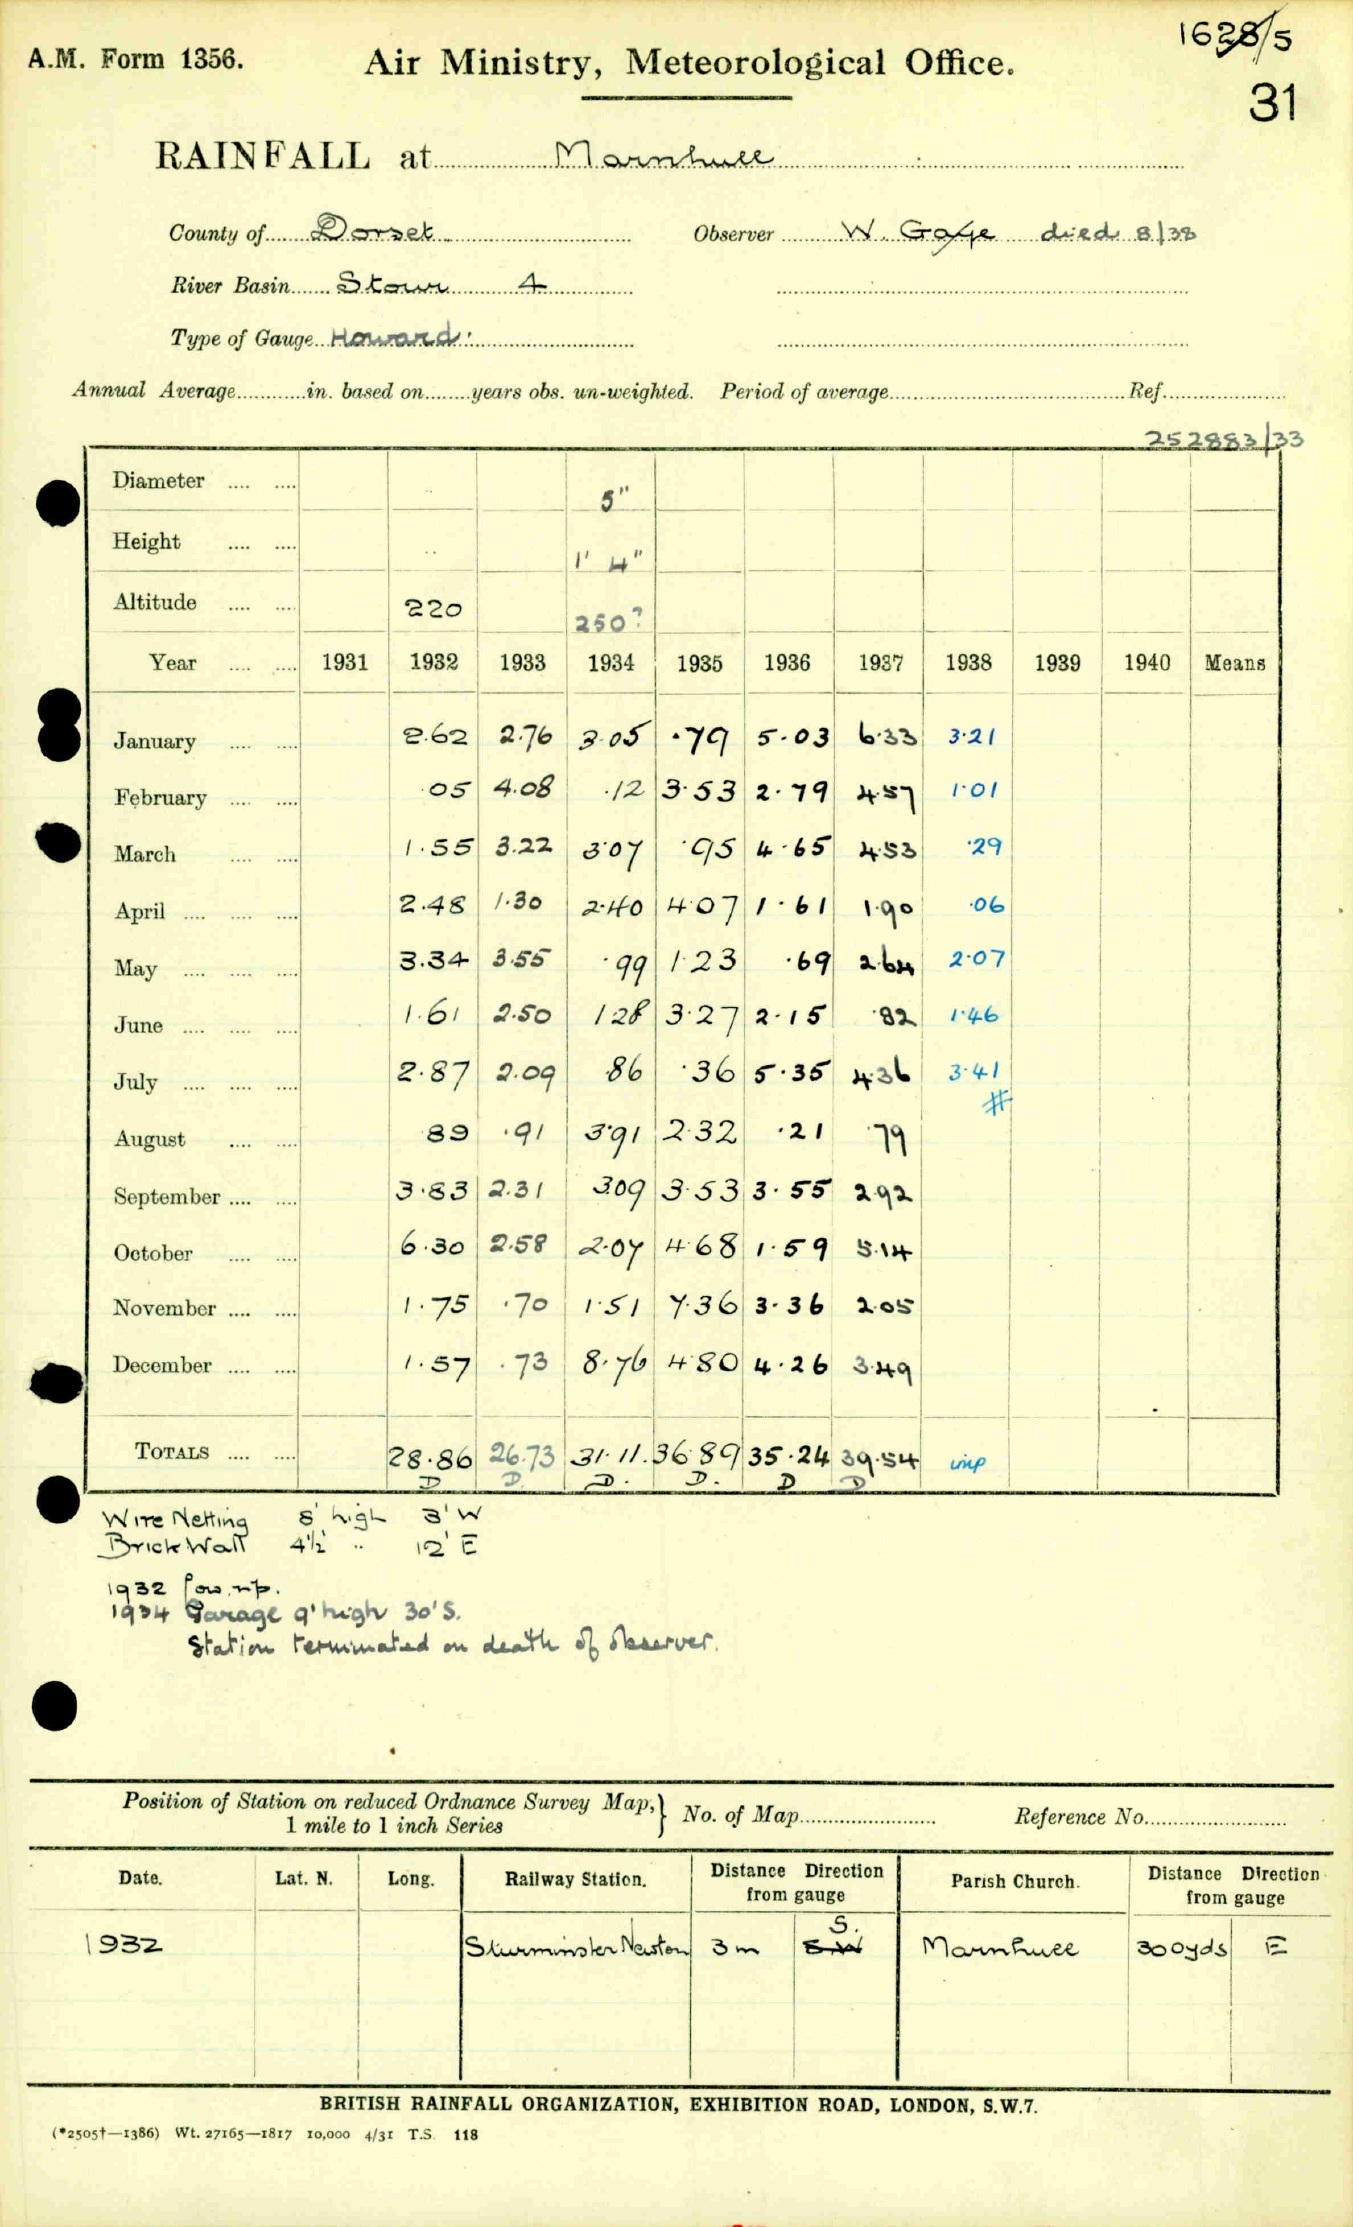 A.M. Form 1356. Air Ministry, Meteorological Office. 1628/5
31
RAINFALL at Marnhull
County of Dorset Observer W. Gaye died 8/38
River Basin Stour 4
Type of Gauge Howard
Annual Average in. based on years obs. un-weighted. Period of average Ref.
252883/33
Diameter 5"
Height 1' 4"
Altitude 220 250?
Year 1931 1932 1933 1934 1935 1936 1937 1938 1939 1940 Means
January 2.62 2.76 3.05 .79 5.03 6.33 3.21
February .05 4.08 .12 3.53 2.79 4.57 1.01
March 1.55 3.22 3.07 .95 4.65 4.53 .29
April 2.48 1.30 2.40 4.07 1.61 1.90 .06
May 3.34 3.55 .99 1.23 .69 2.64 2.07
June 1.61 2.50 1.28 3.27 2.15 .82 1.46
July 2.87 2.09 .86 .36 5.35 4.36 3.41
#
August .89 .91 3.91 2.32 .21 .79
September 3.83 2.31 3.09 3.53 3.55 2.92
October 6.30 2.58 2.07 4.68 1.59 5.14
November 1.75 .70 1.51 7.36 3.36 2.05
December 1.57 .73 8.76 4.80 4.26 3.49
TOTALS 28.86 26.73 31.11 36.89 35.24 39.54 imp
D D. D. D. D D
Wire Netting 8' high 3' W
Brick Wall 4½' " 12' E
1932
1934 Garage 9' high 30' S.
Station terminated on death of observer.
Position of Station on reduced Ordnance Survey Map,} No. of Map Reference No.
1 mile to 1 inch Series
Date. Lat. N. Long. Railway Station. Distance Direction from gauge Parish Church. Distance Direction from gauge
S.
1932 Sturminster Newton 3 m S W Marnhull 300yds E
BRITISH RAINFALL ORGANIZATION, EXHIBITION ROAD, LONDON, S.W.7.
(*2505†—1386) Wt. 27165—1817 10,000 4/31 T.S. 118